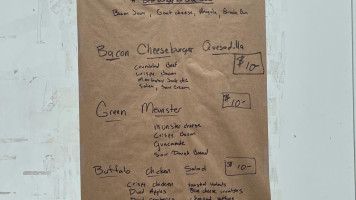 Bacon Jam, Goat cheese, Arugula, Brioche Bun
Bacon Cheeseburger Quesadilla
$10-
Crumbled Beef
Crispy Bacon
Salsa, Sour Cream
Green Meunster
$10-
Munster cheese
Crispy Bacon
Guacamole
Sour Dough Bread
Buffalo Chicken Salad
$10-
Crispy chicken
Diced Apples Blue cheese crumbles